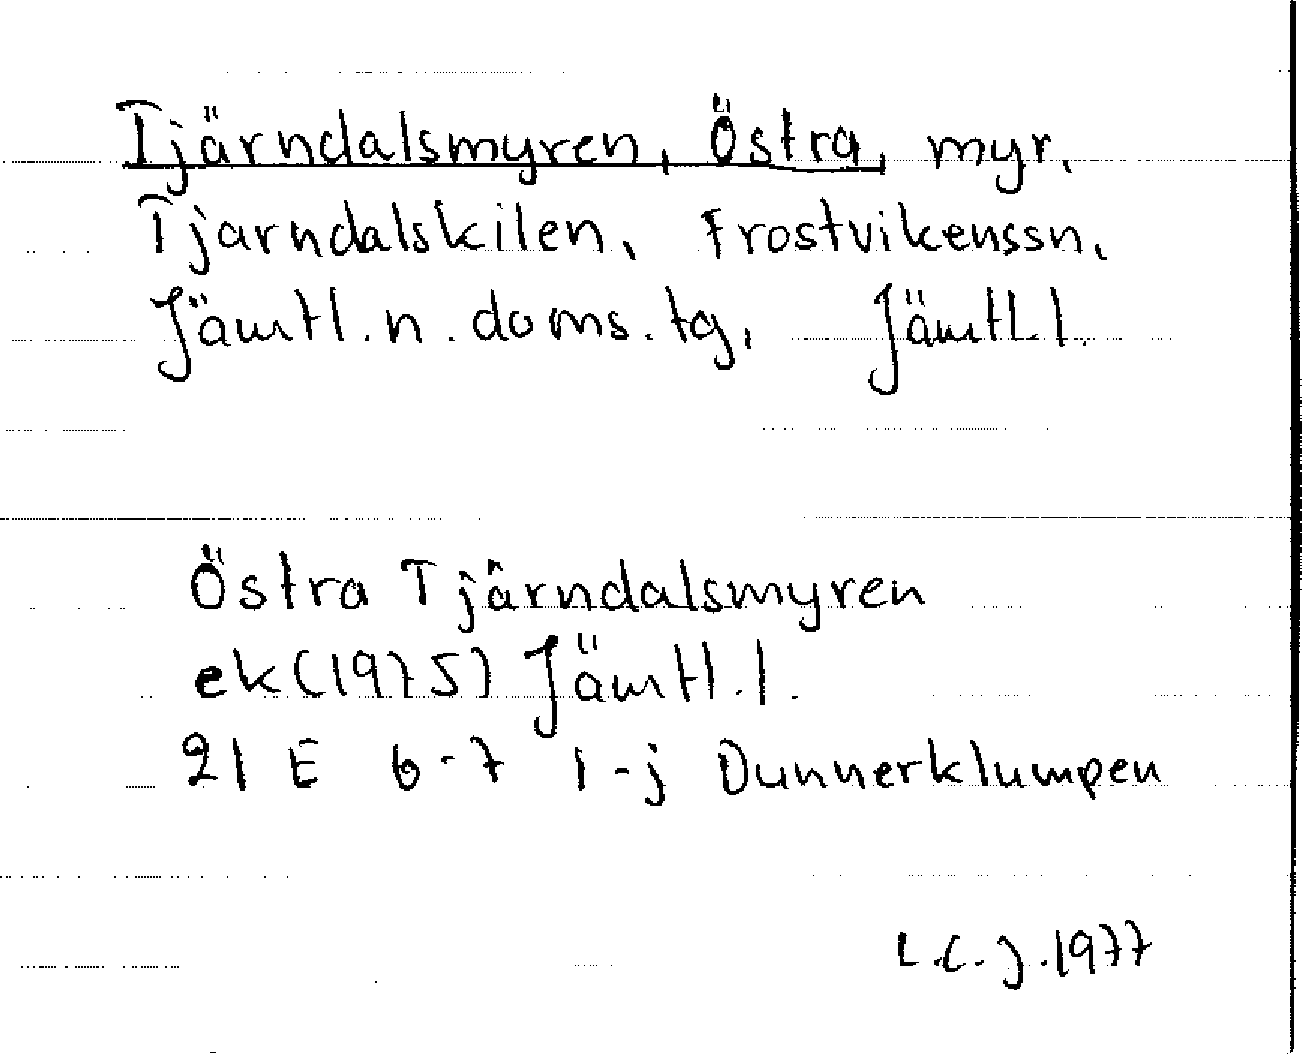 Tjärndalsmyren, Östra, myr,
Tjarndalskilen, Frostvikenssn,
Jämtl. n. doms. tg, Jämtl l.
Östra Tjärndalsmyren
ek (1975) Jämtl. l.
21 E 6-7 i-j Dunnerklumpen
L.C.J. 1977